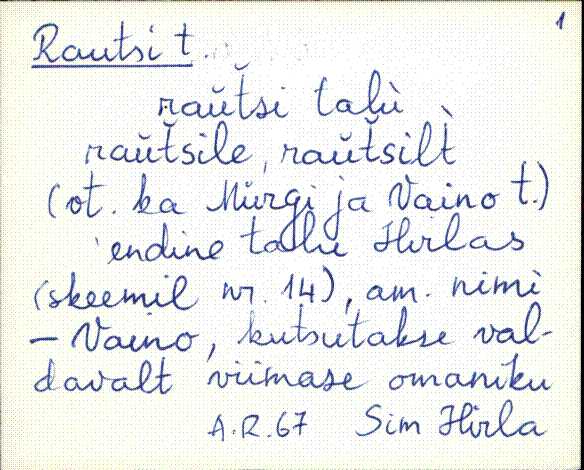 1
Rautsi t.
raŭt̆si talù
raŭt̆sile, raŭt̆silt̀
(vt. ka Mürgi ja Vaino t.)
endine talu Hirlas
(skeemil nr. 14), am. nimi
– Vaino, kutsutakse val-
davalt viimase omaniku
A.R. 67 Sim Hirla